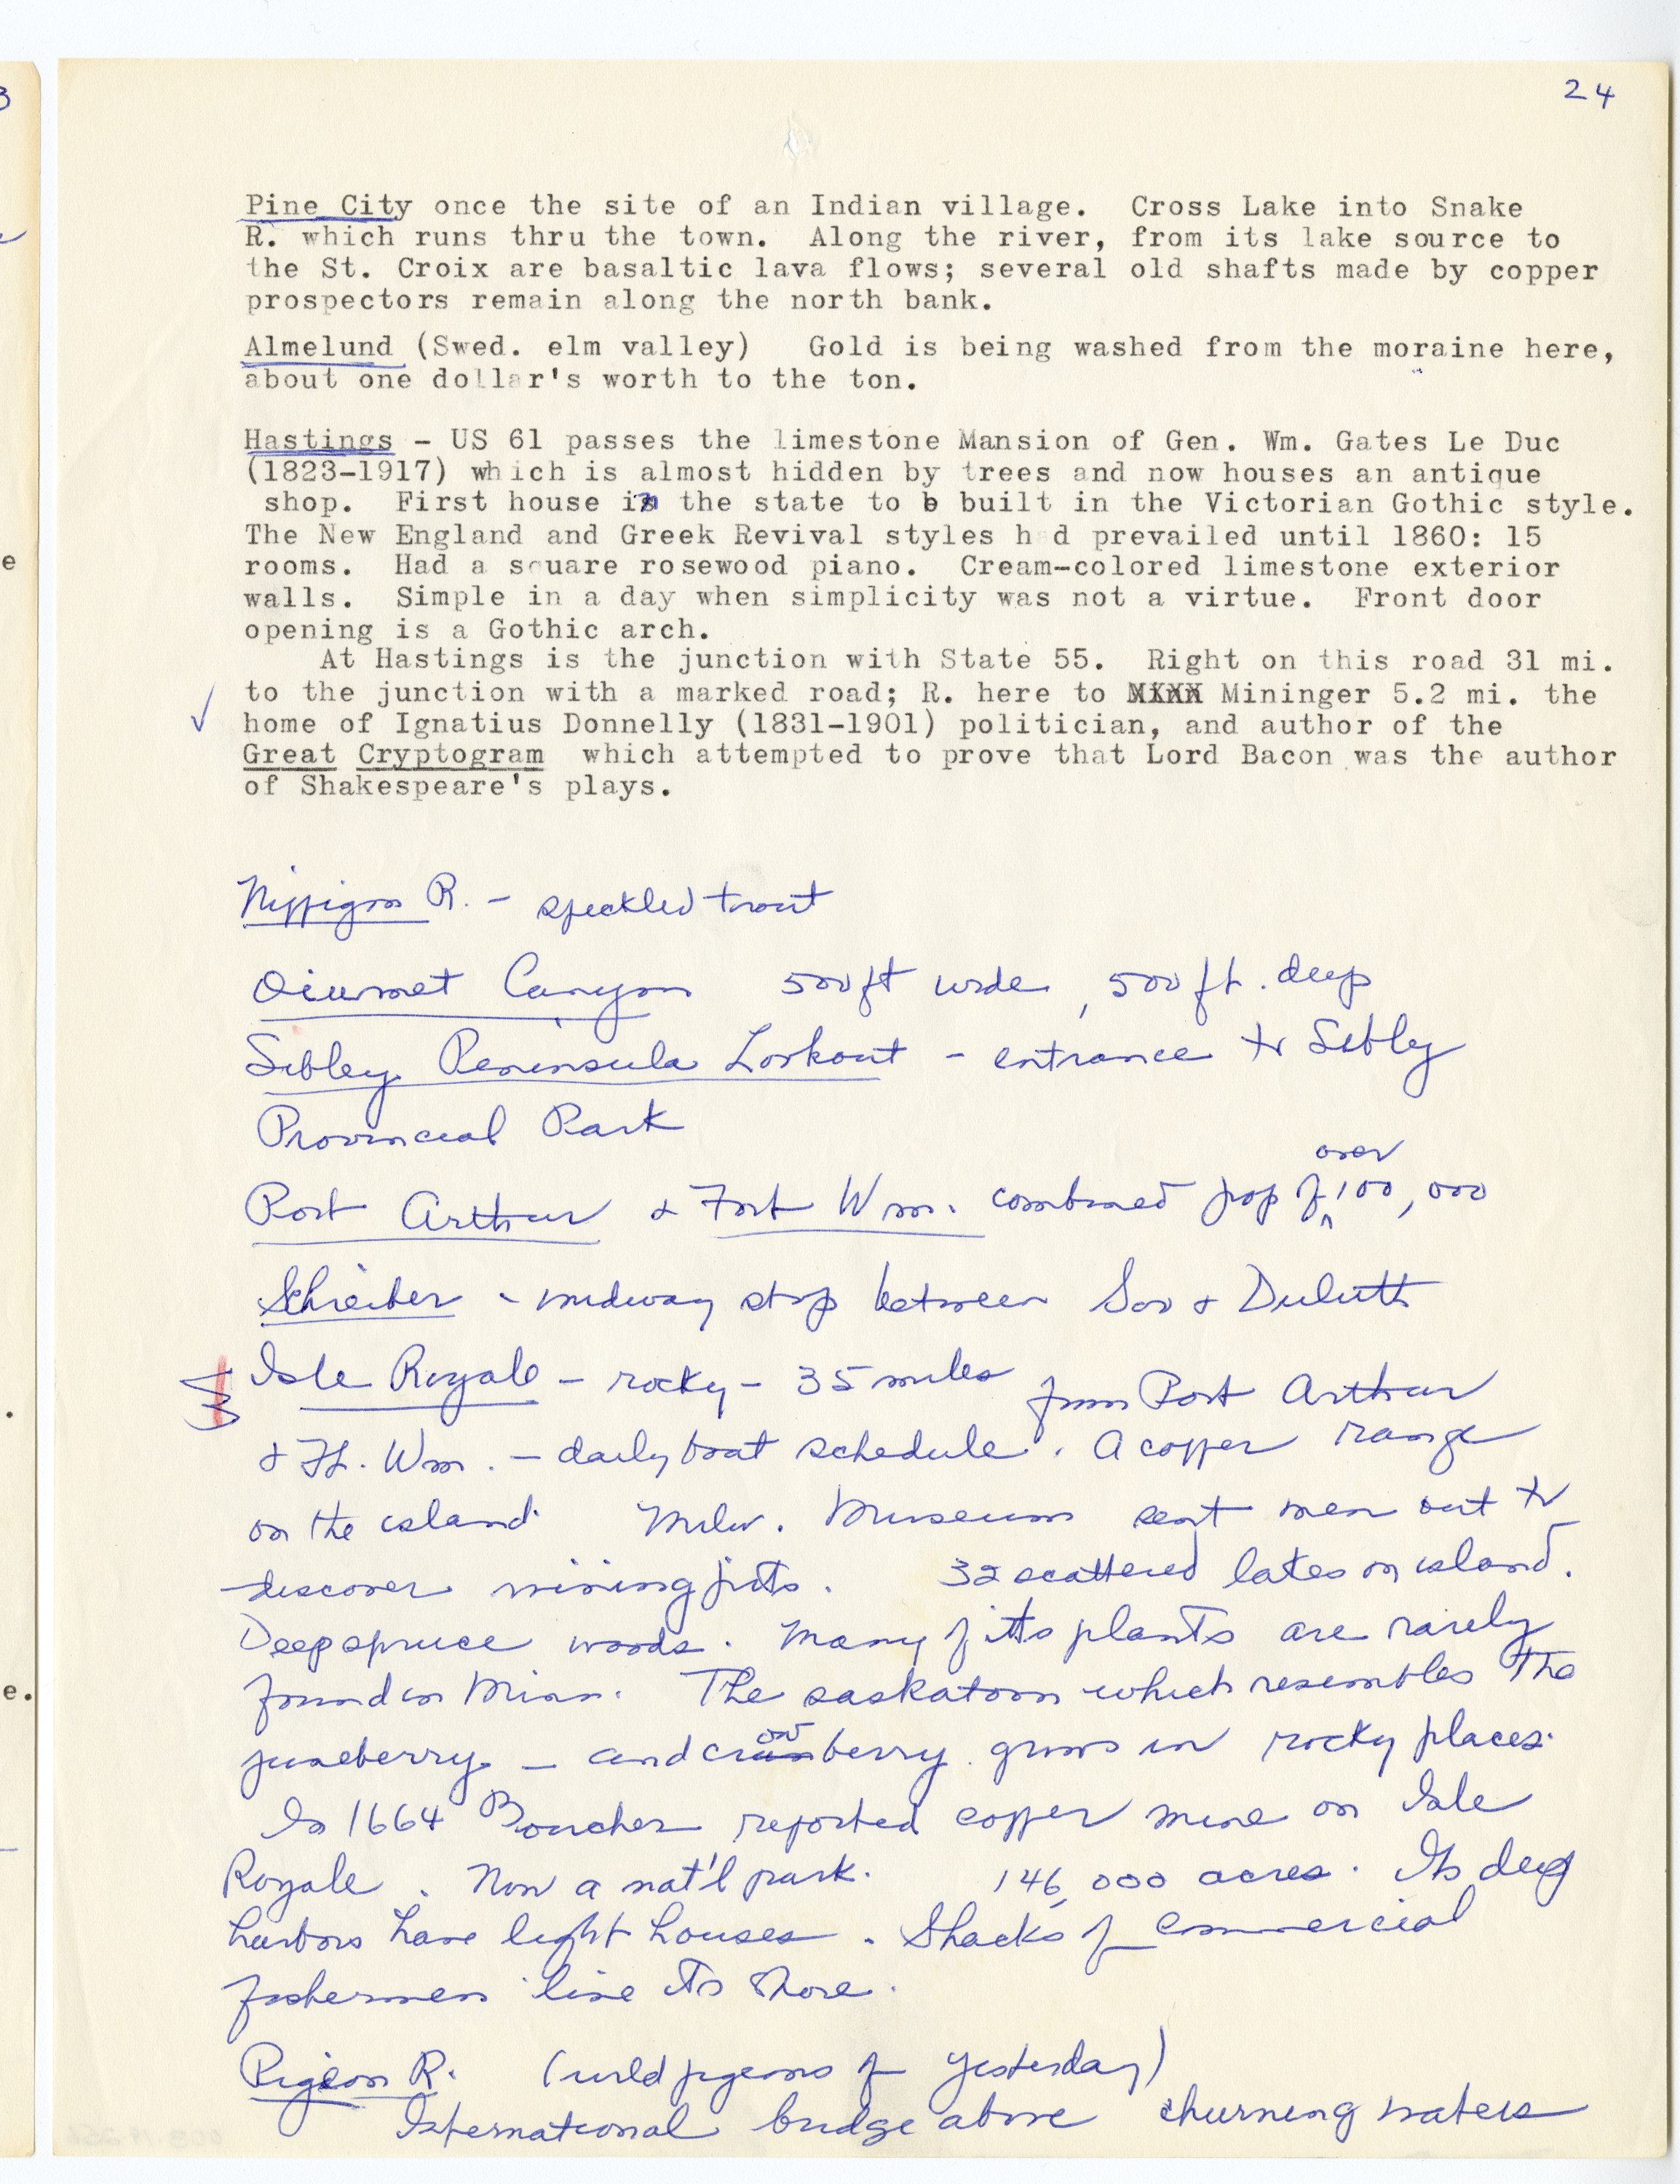 24
Pine City once the site of an Indian village. Cross Lake into Snake
R. which runs thru the town. Along the river, from its lake source to
the St. Croix are basaltic lava flows; several old shafts made by copper
prospectors remain along the north bank.
Almelund (Swed. elm valley) Gold is being washed from the moraine here,
about one dollar's worth to the ton.
Hastings - US 61 passes the limestone Mansion of Gen. Wm. Gates Le Duc
(1823-1917) which is almost hidden by trees and now houses an antique
shop. First house in the state to b built in the Victorian Gothic style.
The New England and Greek Revival styles had prevailed until 1860: 15
rooms. Had a square rosewood piano. Cream-colored limestone exterior
walls. Simple in a day when simplicity was not a virtue. Front door
opening is a Gothic arch.
At Hastings is the junction with State 55. Right on this road 31 mi.
to the junction with a marked road; R. here to XXXX Mininger 5.2 mi. the
home of Ignatius Donnelly (1831-1901) politician, and author of the
Great Cryptogram which attempted to prove that Lord Bacon was the author
of Shakespeare's plays.
Nippigon R. - speckled trout
Oiumet Canyon 500 ft wide, 500 ft. deep
Sibley Peninsula Lookout - entrance to Sibley
Provincial Park
Port Arthur & Fort Wm. combined pop of over 100,000
Schreiber - midway stop between Soo & Duluth
Isle Royale - rocky - 35 miles from Port Arthur
& Ft. Wm. - daily boat schedule. A copper range
on the island. Milw. Museum sent men out to
discover mining pits. 32 scattered lakes on island.
Deep spruce woods. Many of its plants are rarely
found in Minn. The saskatoon which resembles the
juneberry - and crowberry grows in rocky places.
In 1664 Boucher reported copper mine on Isle
Royale. Now a nat'l park. 146,000 acres. Its deep
harbors have light houses. Shacks of commercial
fishermen line its shore.
Pigeon R. (wild pigeons of yesterday)
International bridge above churning waters